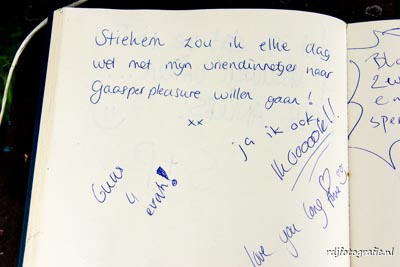 Stiekem zou ik elke dag
wel met mijn vriendinnetjes naar
Gaasper pleasure willen gaan!
xx
ja ik ook!
Ik Gooooole!!
Guus
4
evah!
love you long
Bla
2w
en
spe
rdjfotografie.nl